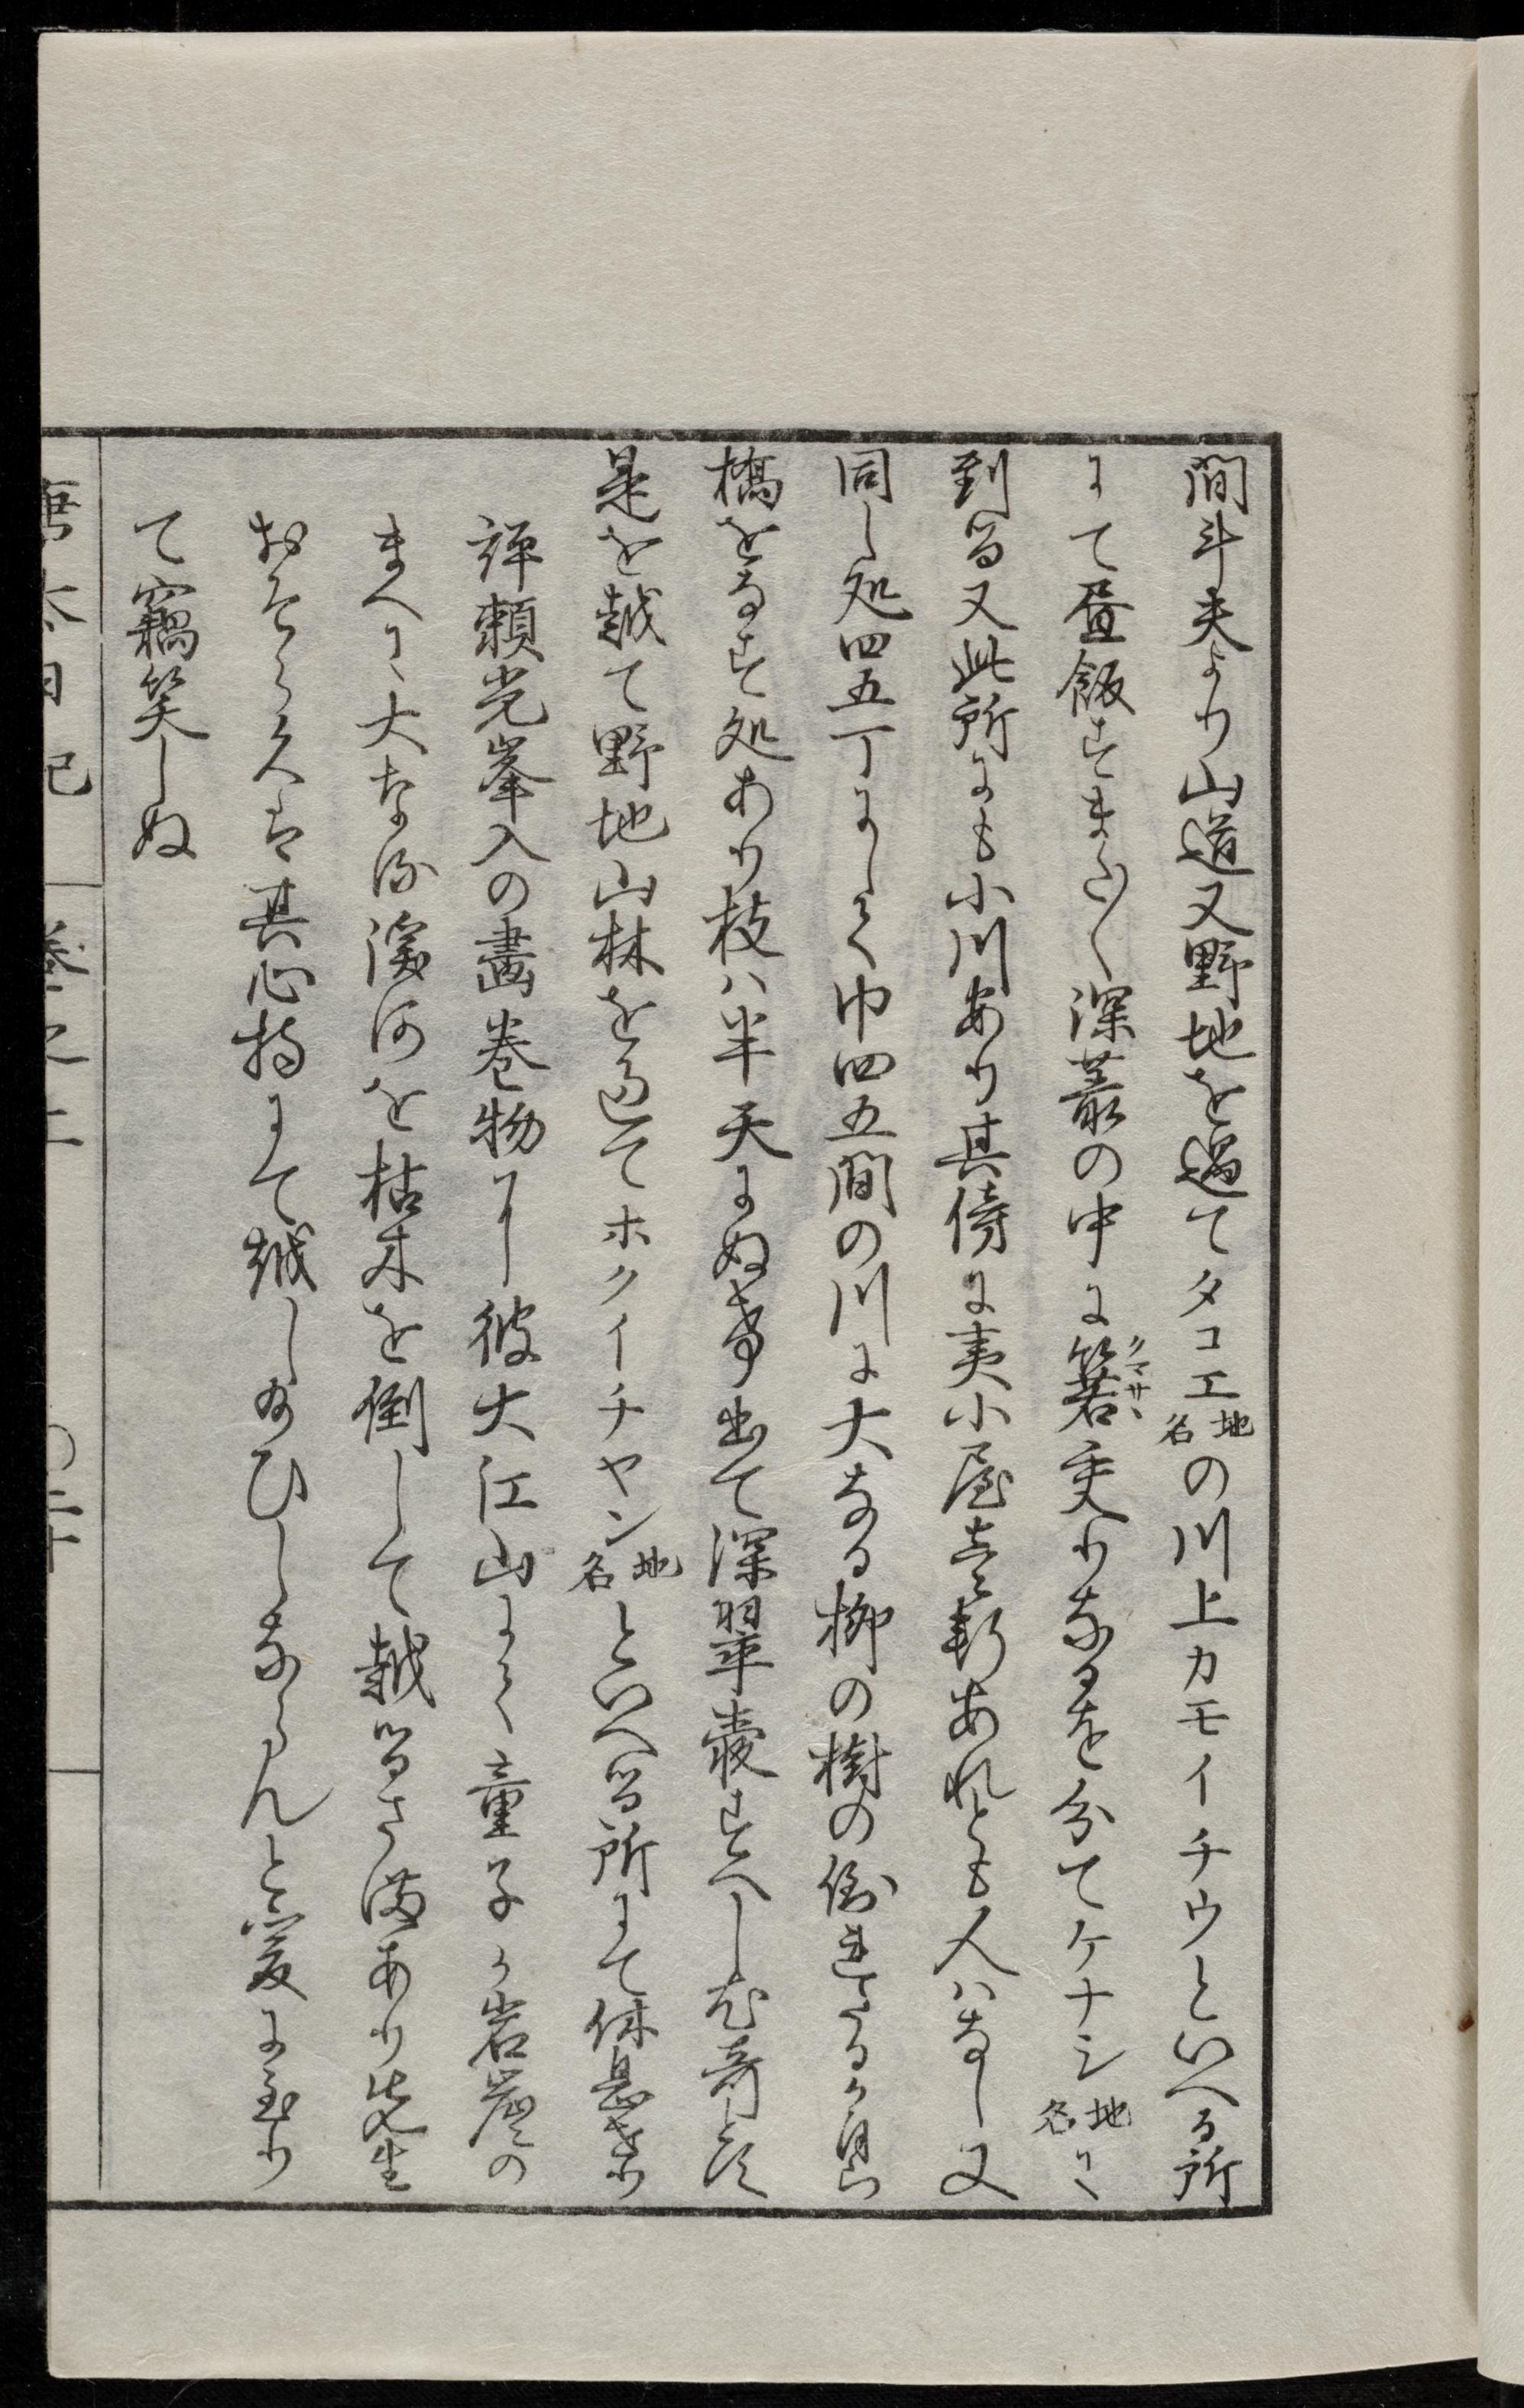 間斗夫より山道又野地を過てタコエ地名の川上カモイチウといへる所
にて昼飯すまた〱深叢の中に箬クマサヽ交りなるを分てケナシ地名に
到る又此所にも小川あり其傍に夷小屋壱軒あれとも人ハなし又
同し処四五丁にして巾四五間の川に大なる柳の樹の倒れたるか自ら
橋をなす処あり枝ハ半天にぬき出て深翠叢すへし尤奇とす
是を越て野地山林を過てホクイチヤン地名といへる所にて休息せり
譯頼光峯入の畫巻物に彼大江山にて童子か岩崫の
まへに大なる渓河を枯木を倒して越るさまあり先生
おそらくは其心持にて越し給ひしならんと爰に至り
て竊笑しぬ
唐太日記 巻之上 〇二十